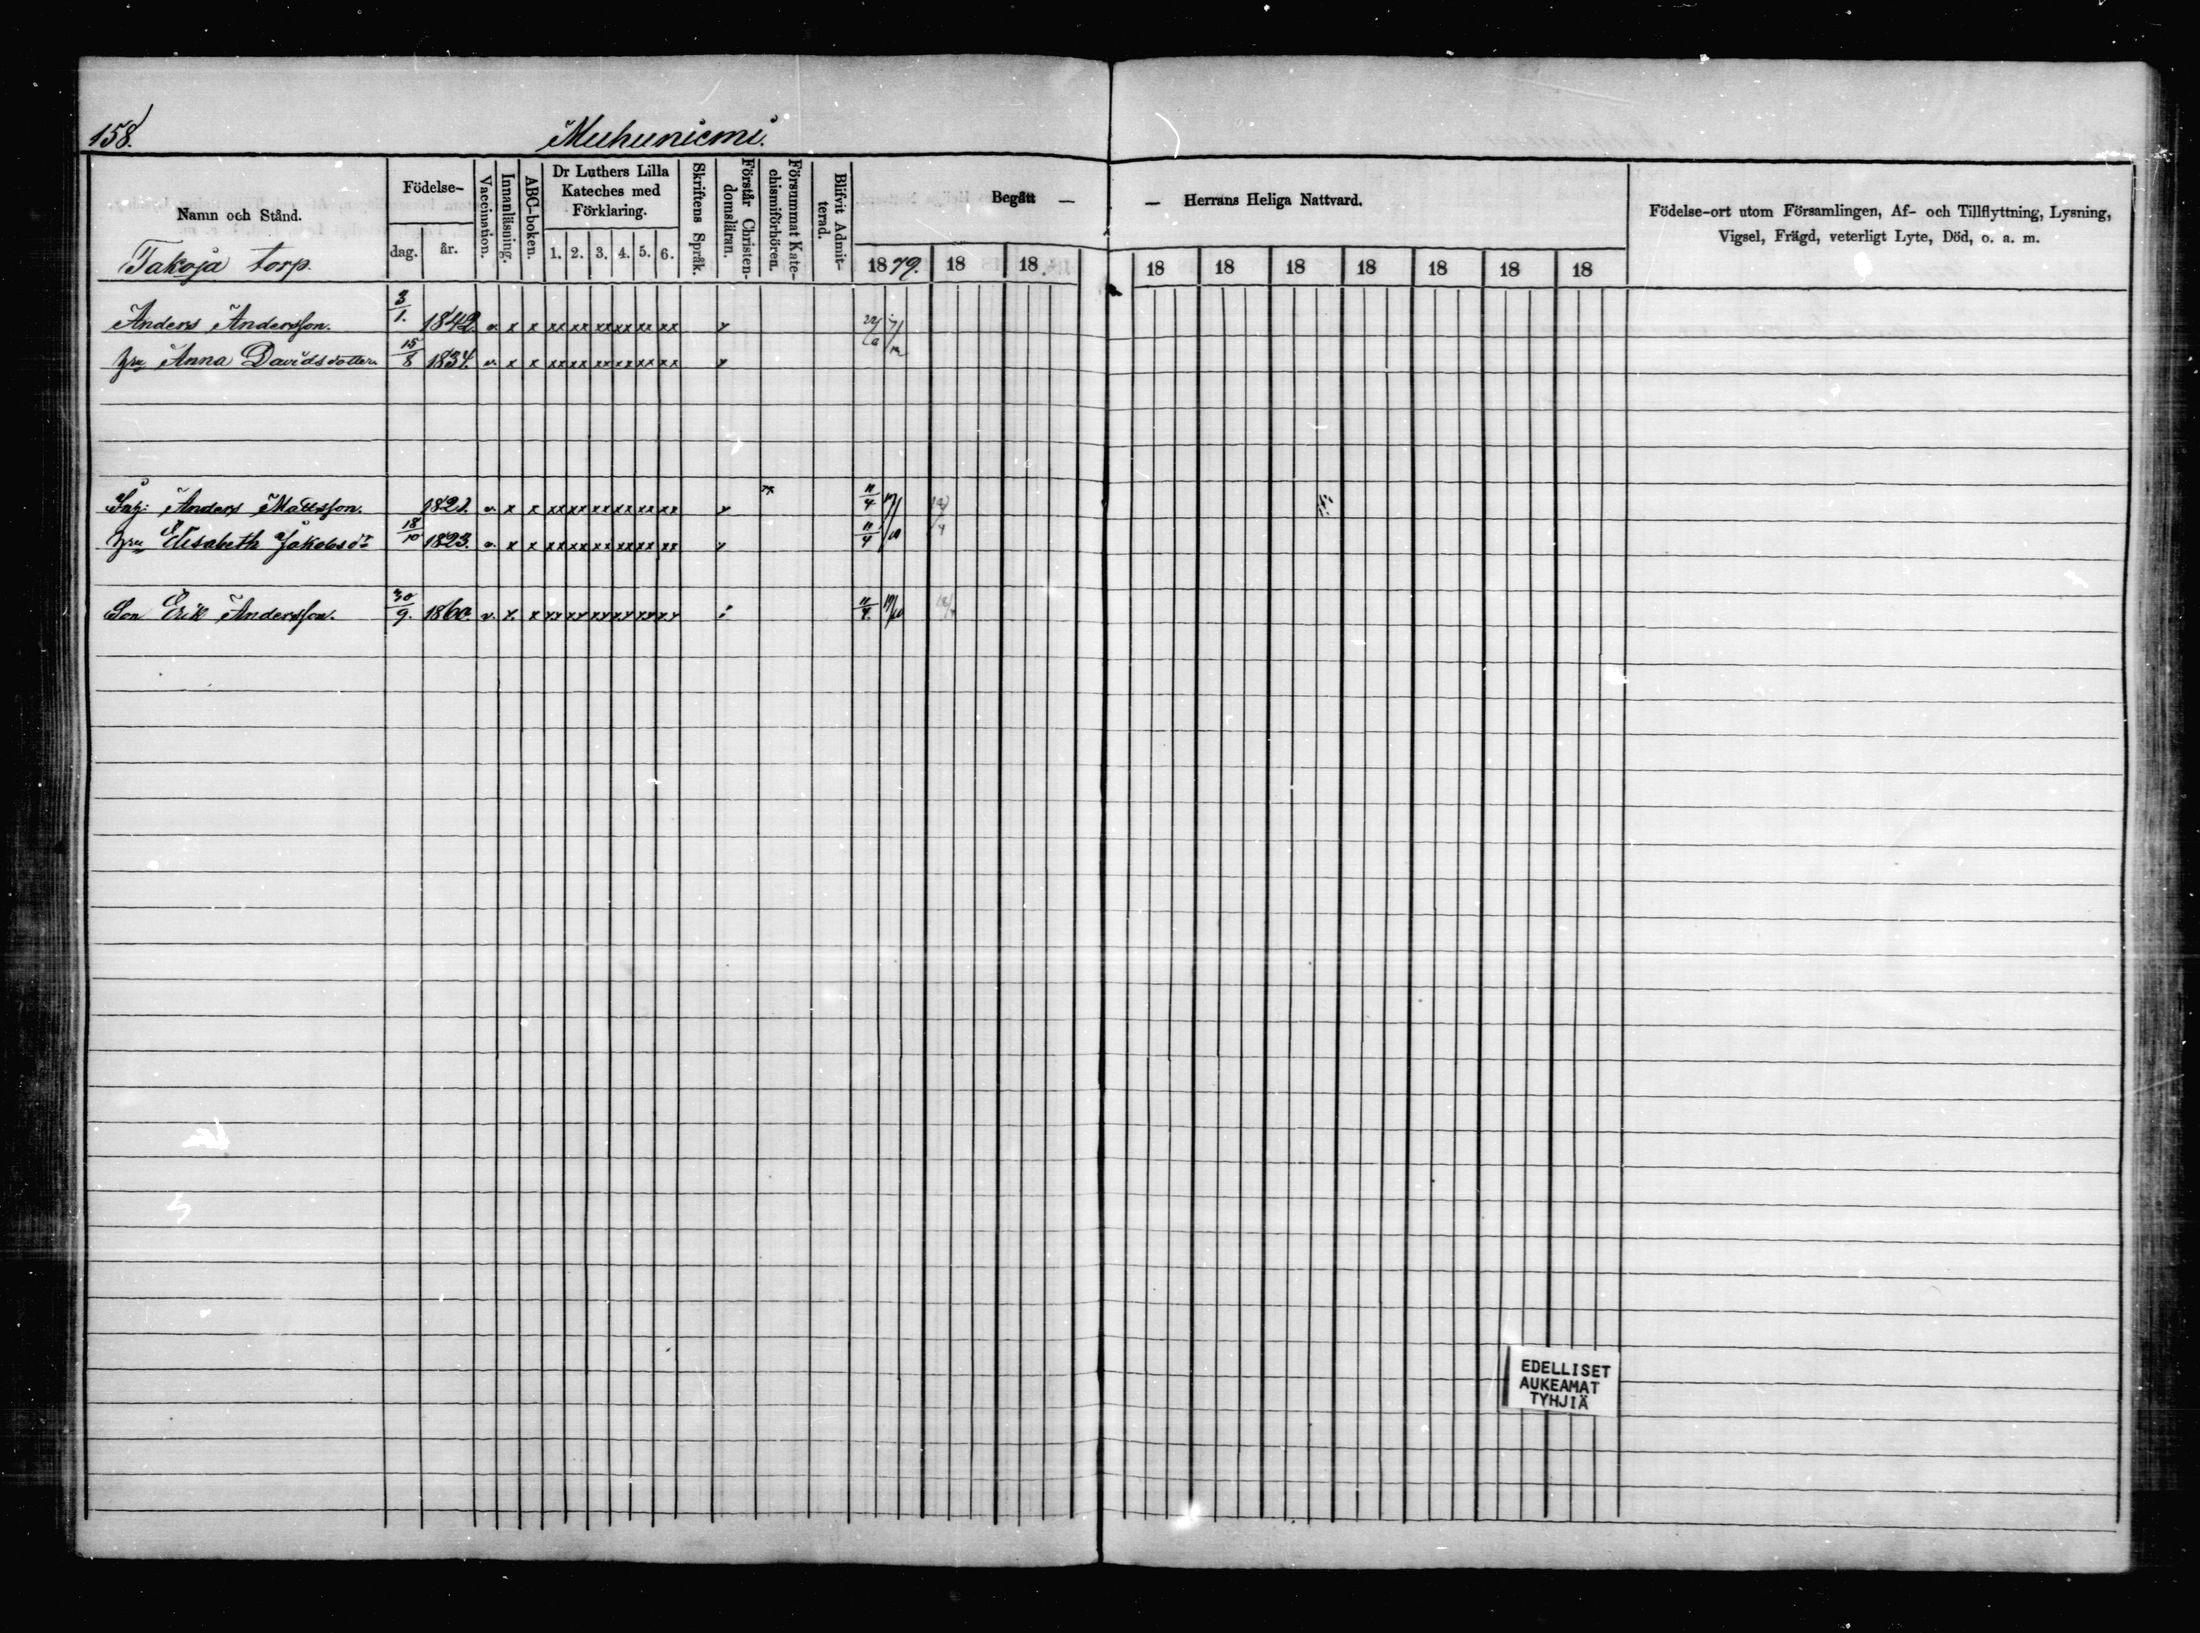 158.
Muhuniemi.
Namn och Stånd.
Födelse-
dag.
år.
Vaccination.
Innanläsning.
ABC-boken.
Dr Luthers Lilla
Kateches med
Förklaring.
1. 2. 3. 4. 5. 6.
Skriftens Språk.
Förstår Christen-
domsläran.
Försummat Kate-
chismiförhören.
Blifvit Admit-
terad.
Begått —
— Herrans Heliga Nattvard.
1879. 18 18 18 18 18 18 18 18 18
Födelse-ort utom Församlingen, Af- och Tillflyttning, Lysning,
Vigsel, Frägd, veterligt Lyte, Död, o. a. m.
Takoja torp.
Anders Andersson. 3/1. 1842. v. x x xx xx xx xx xx xx
hru Anna Davidsdotter 15/8 1834. v. x x xx xx xx xx xx xx
Anders Mattsson. 1821. v. x x xx xx xx xx xx xx 11/4
hru Elisabeth Jakobsdr 18/10 1823. v. x x xx xx xx xx xx xx 11/4
Son Erik Andersson. 30/9. 1860. v. x. x xx xx xx xx xx xx 11/4. 19/10
EDELLISET
AUKEAMAT
TYHJIÄ